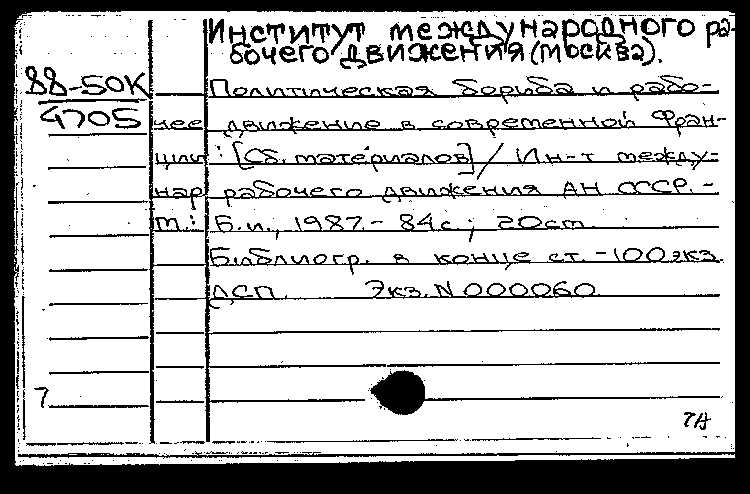 Институт международного ра-
бочего движения (Москва).
88-50К
4705
Политическая борьба и рабо-
чее движение в современной Фран-
ции : [Сб. материалов] / Ин-т между-
нар рабочего движения АН СССР. -
М.: Б.и., 1987. - 84с.; 20см.
Библиогр. в конце ст. - 100экз.
ДСП. Экз. N 000060.
7